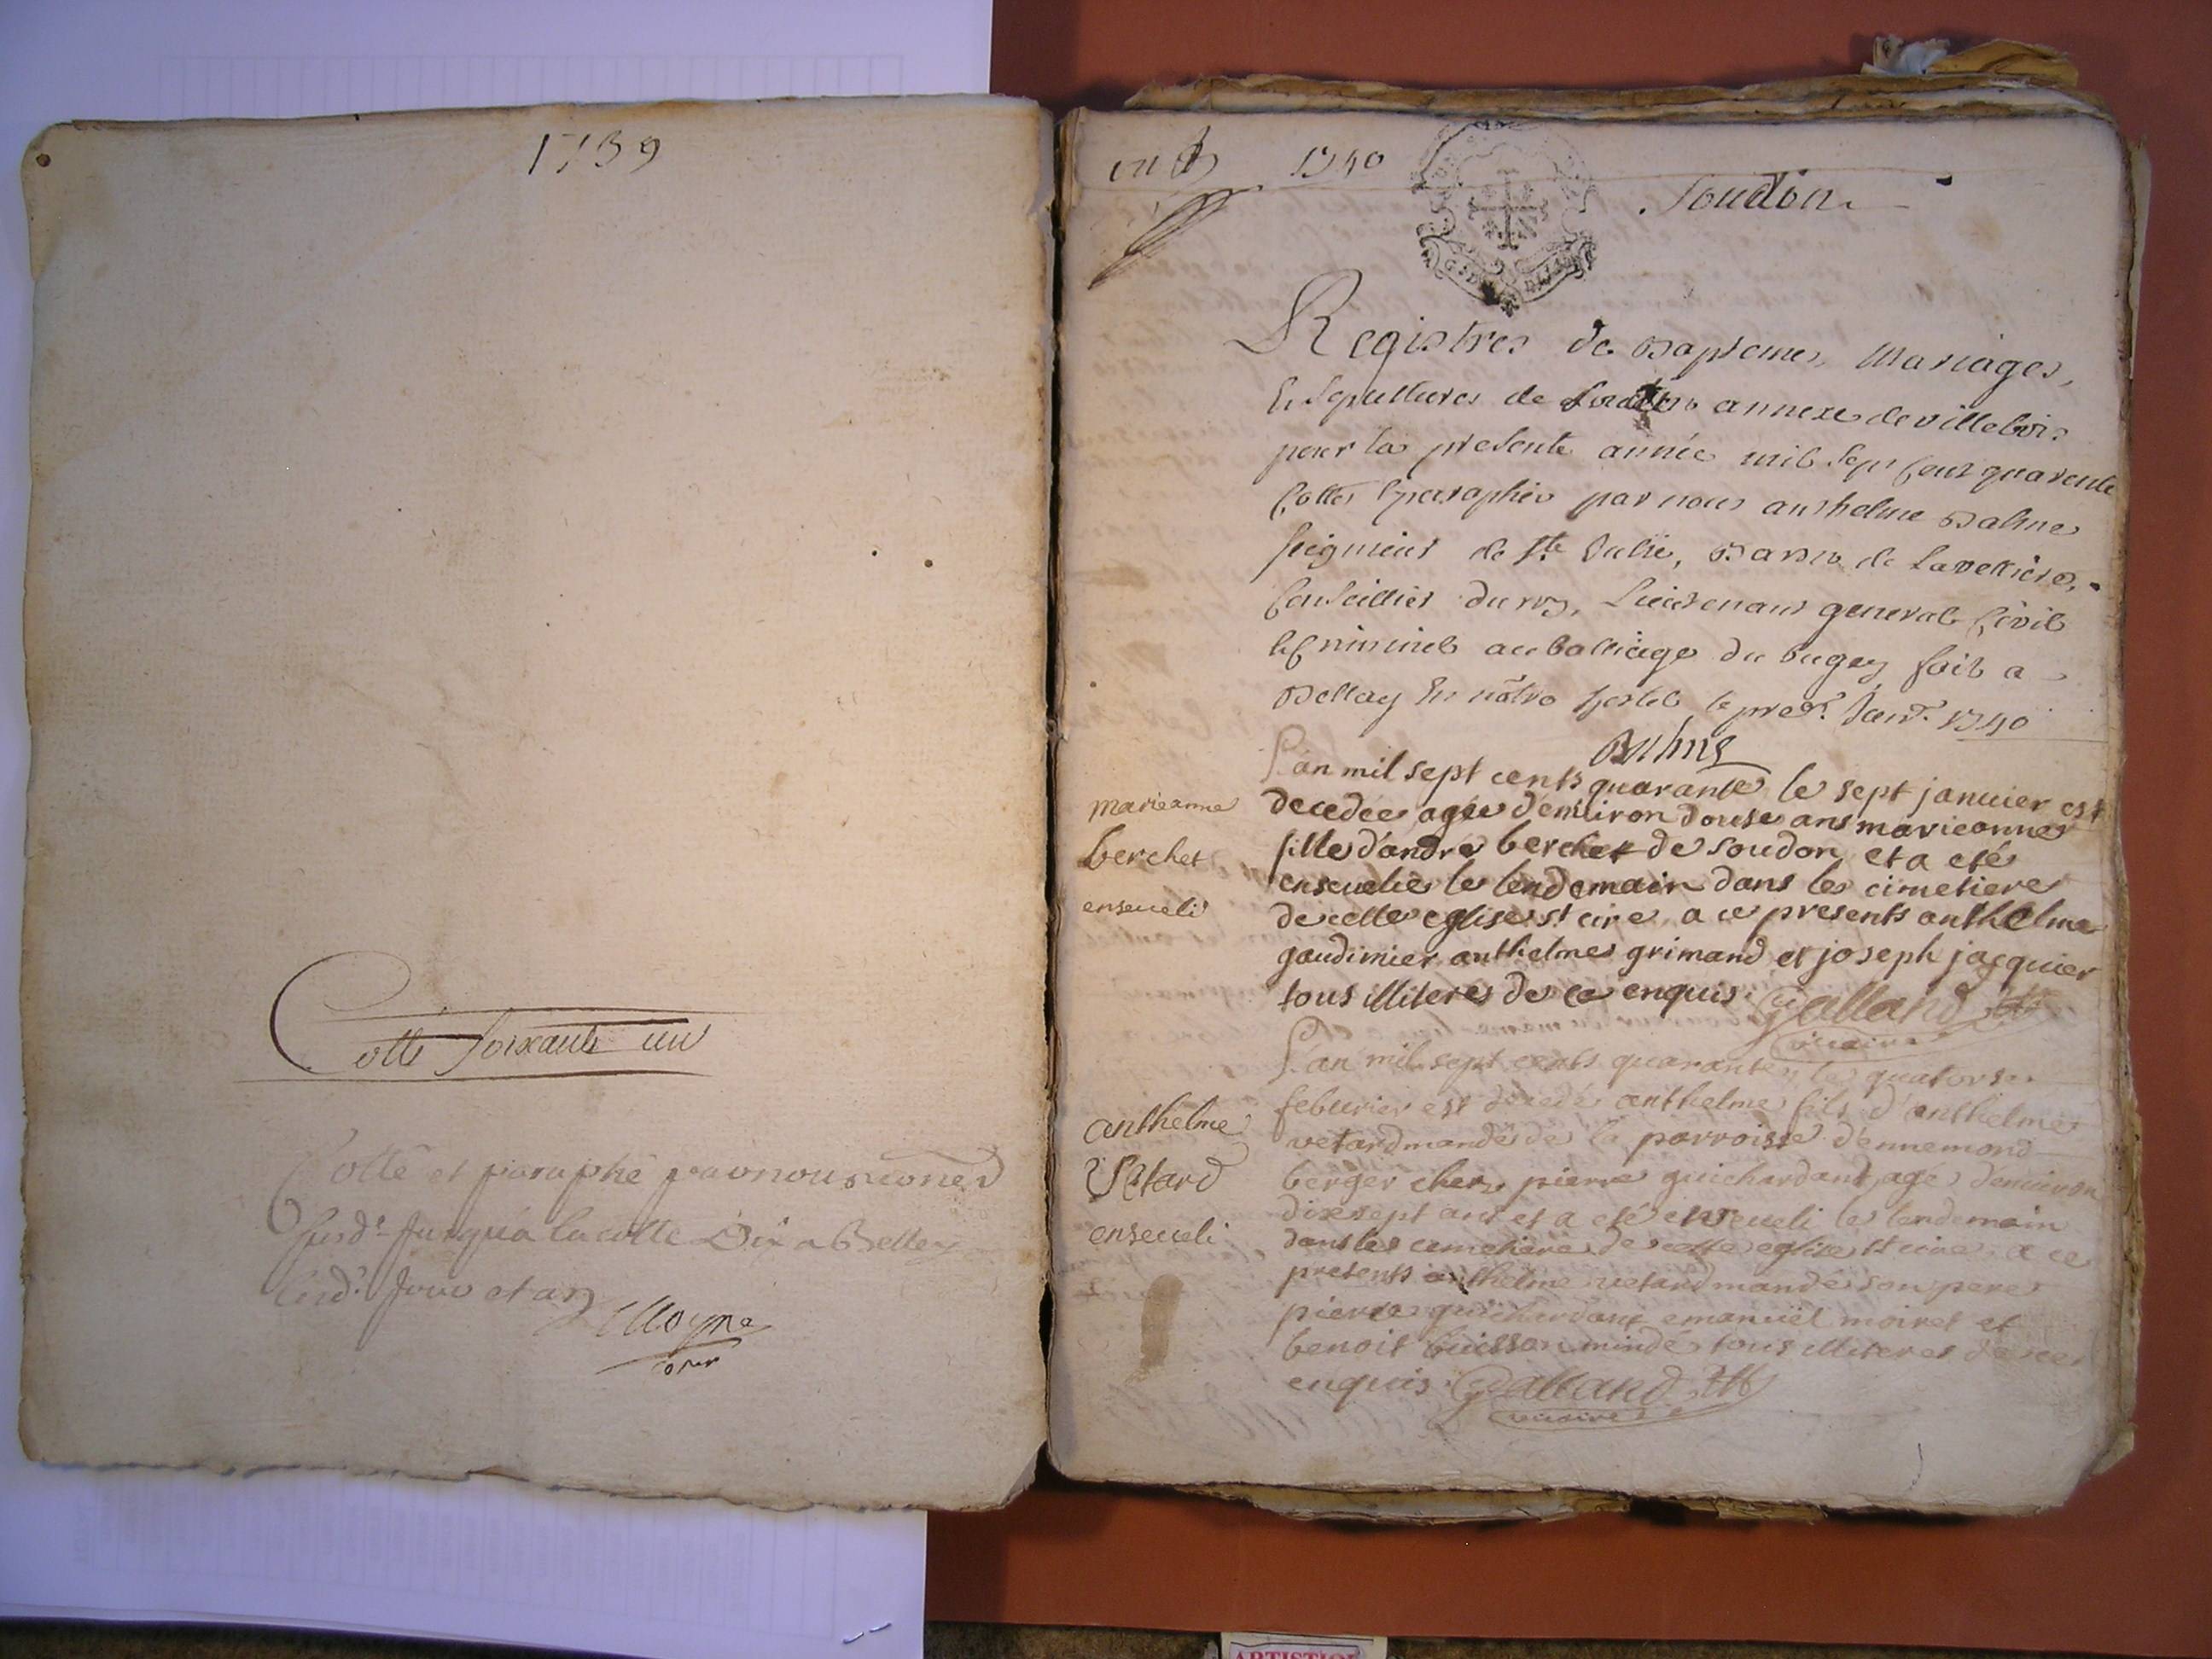 1739
Cotte soixante un
Cotté et paraphé par nous
jusqua la cotte Dix a Belley
jour et an
1740
Soudon
Registres de Baptemes, Mariages,
Et Sepultures de Soudon annexe de villebois
pour la presente année mil sept cent quarente
Cottés Et paraphés par nous anthelme Balme
seigneur de Ste Julie, Baron de
Conseillier du roy, Lieutenant general Civil
Et Criminel au balliage du bugey fait a
Bellay En nôtre hostel le Janr. 1740
Balme
L'an mil sept cents quarante le sept januier est
decedée agée d'enuiron douse ans marieanne
fille d'andré berchet de soudon et a eté
enseuelie le lendemain dans le cimetiere
de cette eglise st cire a ce presents anthelme
gaudimier anthelme grimand et joseph jacquier
tous illiteres de ce enquis. Galland
vicaire
marieanne
berchet
enseueli
L'an mil sept cents quarante le quatorse
feburier est decedé anthelme fils d'anthelme
vetard mandé de la parroisse d'ennemond
berger chez pierre guichardant agé d'enuiron
dixsept ans et a eté enseueli le lendemain
dans le cemetiere de cette eglise st cire a ce
presents anthelme vetard mandé son pere
pierre guichardant emanuël moiret et
benoit buisson mindé tous illiteres de ce
enquis. Galland
vicaire
anthelme
Vetard
enseueli
ARTISTIQU